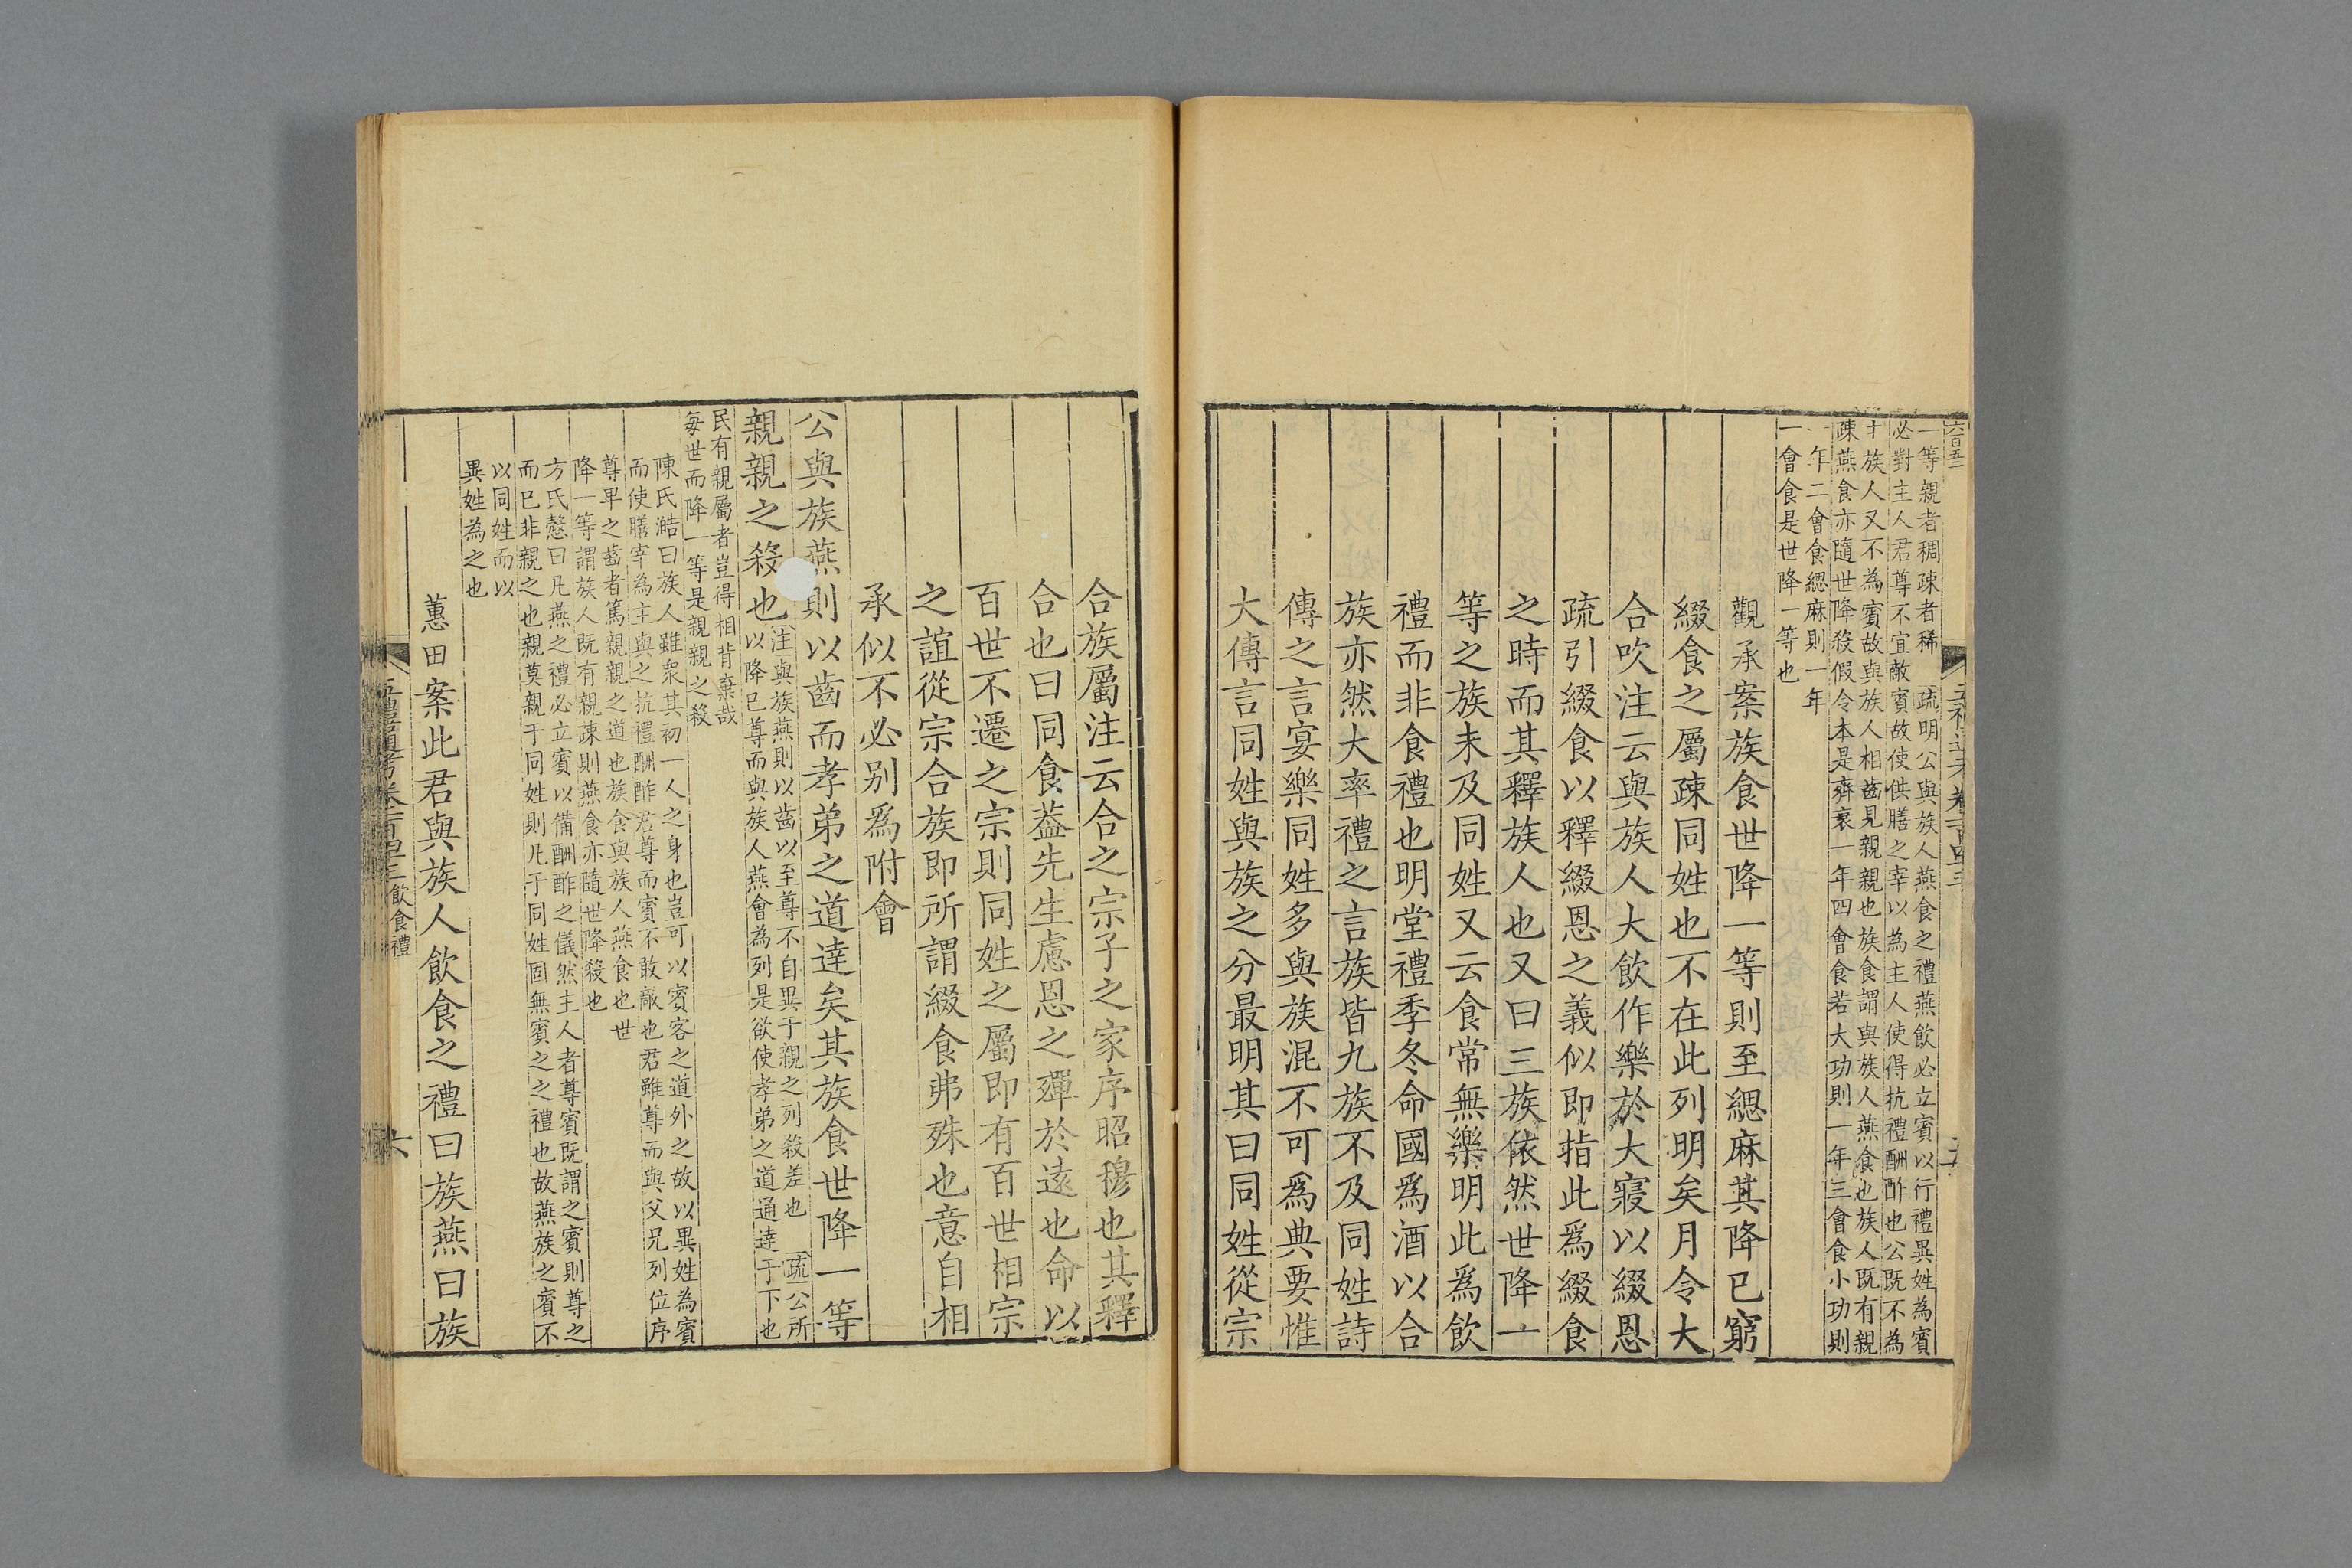 六百五二
一等親者稠疎者稀　疏明公與族人燕食之禮燕飲必立賓以行禮異姓為賓
必對主人君尊不宜敵賓故使供膳之宰以為主人使得抗禮酬酢也公既不為
族人又不為賓故與族人相齒見親親也族食謂與族人燕食也族人既有親
疎燕食亦隨世降殺假令本是齊衰一年四會食若大功則一年三會食小功則
一年二會食緦麻則一年
一會食是世降一等也
觀承案族食世降一等則至緦麻其降已窮
綴食之屬疎同姓也不在此列明矣月令大
合吹注云與族人大飲作樂於大寢以綴恩
疏引綴食以釋綴恩之義似即指此為綴食
之時而其釋族人也又曰三族依然世降一
等之族未及同姓又云食常無樂明此為飲
禮而非食禮也明堂禮季冬命國為酒以合
族亦然大率禮之言族皆九族不及同姓詩
傳之言宴樂同姓多與族混不可為典要惟
大傳言同姓與族之分最明其曰同姓從宗
合族屬注云合之宗子之家序昭穆也其釋
合也曰同食葢先生慮恩之殫於遠也命以
百世不遷之宗則同姓之屬即有百世相宗
之誼從宗合族即所謂綴食弗殊也意自相
承似不必别為附會
公與族燕則以齒而孝弟之道達矣其族食世降一等
親親之殺也
注與族燕則以齒以至尊不自異于親之列殺差也　疏公所
以降已尊而與族人燕會為列是欲使孝弟之道通達于下也
民有親屬者豈得相背棄哉
每世而降一等是親親之殺
陳氏澔曰族人雖衆其初一人之身也豈可以賓客之道外之故以異姓為賓
而使膳宰為主與之抗禮酬酢君尊而賓不敢敵也君雖尊而與父兄列位序
尊卑之齒者篤親親之道也族食與族人燕食也世
降一等謂族人既有親疎則燕食亦隨世降殺也
方氏慤曰凡燕之禮必立賓以備酬酢之儀然主人者尊賓既謂之賓則尊之
而已非親之也親莫親于同姓則凡于同姓固無賓之之禮也故燕族之賓不
以同姓而以
異姓為之也
蕙田案此君與族人飲食之禮曰族燕曰族
五禮通考卷一百四十三飲食禮　六